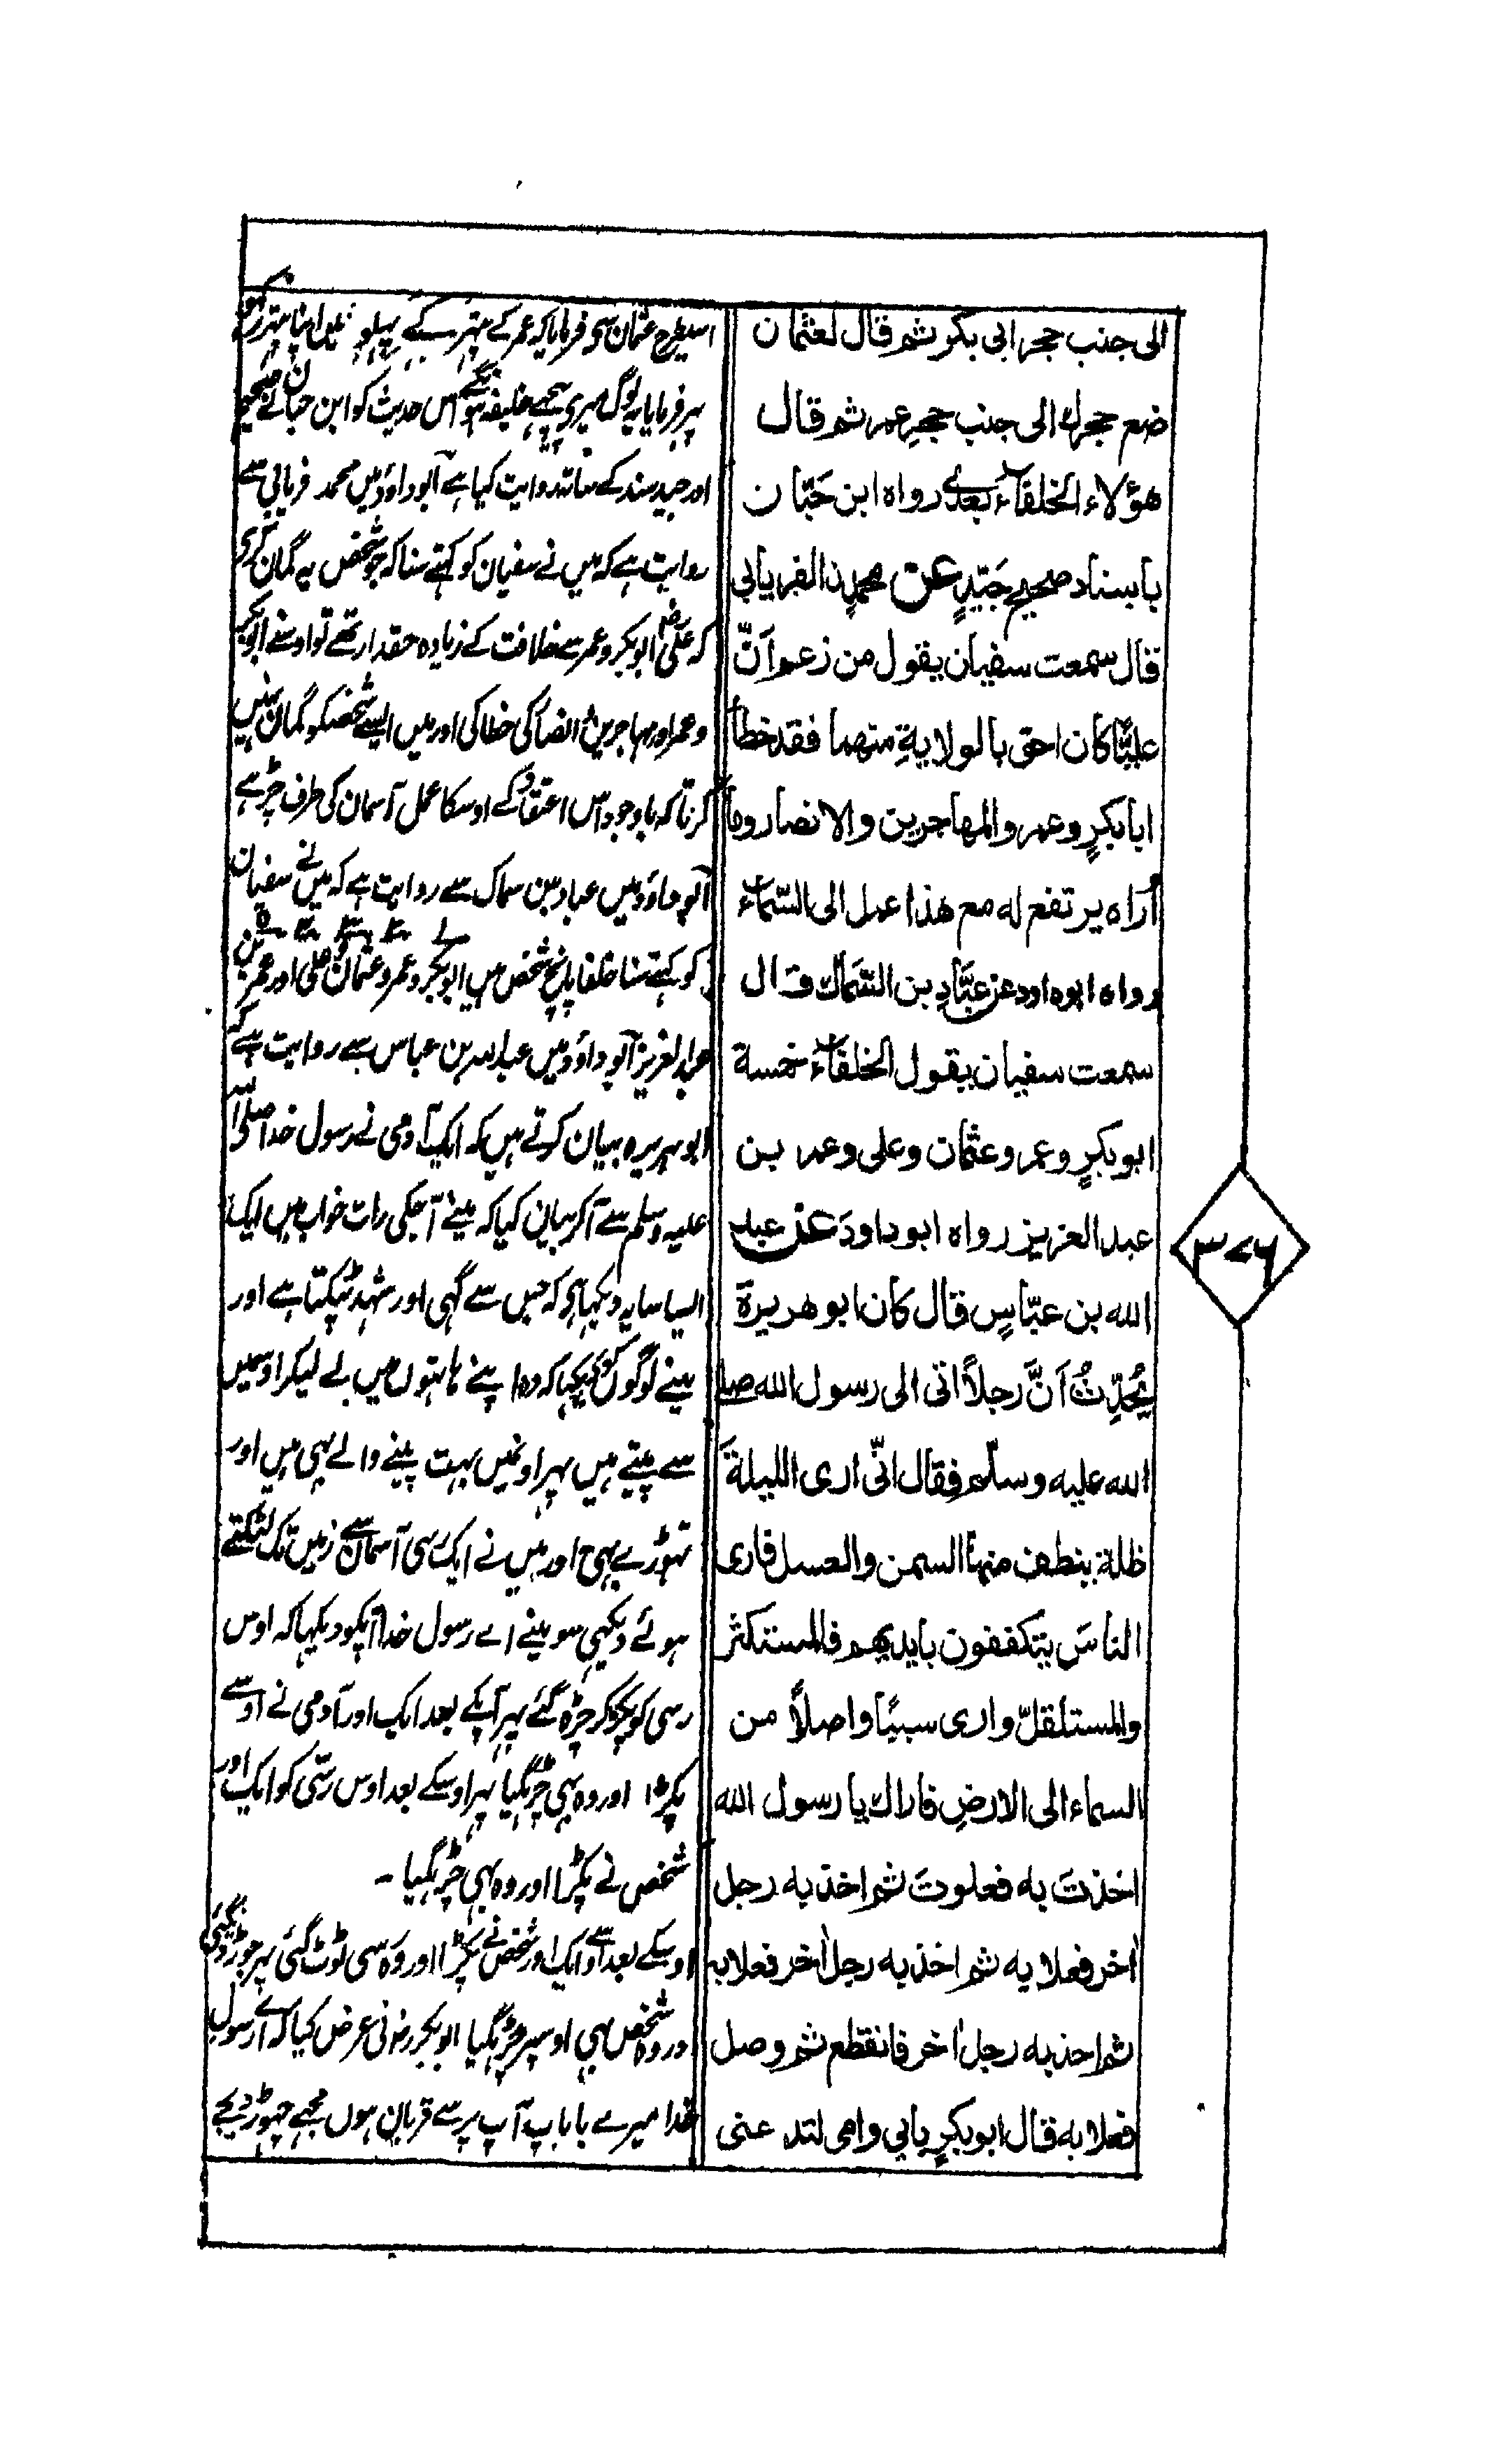 الى جنب حجر ابى بكر ثم قال لعثمان
ضع حجرك الى جنب حجرِ عمر ثم قال
هؤلاء الخلفاء بعدى رواه ابن حَبّان
باسناد صحيح جَيّدٍ عن محمدٍ ن الفريابى
قال سمعت سفيان يقول من زعم اَنَّ
عليّاً كان احق بالولايةِ منهما فقد خطأ
ابا بكرٍ وعمر والمهاجرين والانصار وما
اُراه يرتفع له مع هذا عمل الى السّماء
رواه ابوداود عن عبَّادِ بن السَّماك قال
سمعت سفيان يقول الخلفاء خمسة
ابو بكرٍ وعمر وعثمان وعلى وعمر بن
عبد العزيز رواه ابوداودَ عن عبد
الله بن عبّاسٍ قال كان ابو هريرة
يُحدِّثُ اَنَّ رجلاً اتى الى رسول الله صلى
الله عليه وسلّم فقال انّى ارى الليلةَ
ظلة ينطف منها السمن والعسل فارى
الناسَ يتكففون بايديهم فالمستكثر
والمستقلّ وارى سبباً واصلاً من
السماء الى الارضِ فاراك يا رسول الله
اخذتَ به فعلوتَ ثم اخذ به رجل
اٰخر فعلا به ثم اخذ به رجل اٰخر فعلا به
ثم اخذ به رجل اٰخر فانقطع ثم وصل
فعلا به قال ابو بكرٍ بابى وامى لتدعنى
اسیطرح عثمان سی فرمایا کہ عمر کے پتہر کے پہلو میں اپنا پتہر رکہو
پہر فرمایا یہ لوگ میری پیچہے خلیفہ ہونگے اس حدیث کو ابن حبان نے صحیح
اور جید سند کے ساتہ روایت کیا ہے ابوداؤد میں محمد فریابی سے
روایت ہے کہ میں نے سفیان کو کہتے سنا کہ جو شخص یہ گمان کری
کہ علی رض ابوبکر و عمر سے خلافت کے زیادہ حقدار تھے تو اوسنے ابوبکر
و عمر اور مہاجرین و انصار کی خطا کی اور میں ایسے شخصکو گمان نہیں
کرتا کہ باوجود اس اعتقاد کے اوسکا عمل آسمان کی طرف چڑہے
ابوداؤد میں عباد بن سماک سے روایت ہے کہ میں نے سفیان
کو کہتے سنا خلفا پانچ شخص ہیں ابوبکر و عمر و عثمان و علی اور عمر بن
عبدالعزیز ابوداؤد میں عبداللہ بن عباس سے روایت ہے کہ
ابوہریرہ بیان کرتے ہیں کہ ایک آدمی نے رسول خدا صلی اللہ
علیہ وسلم سے آکر بیان کیا کہ مینے آجکی رات خواب میں ایک
ایسا سایہ دیکہا ہی کہ جس سے گہی اور شہد ٹپکتا ہے اور
مینے لوگوں کو دیکہا کہ وہ اپنے ہاتہوں میں لے لیکر اوسمیں
سے پیتے ہیں پہر اونمیں بہت پینے والے بہی ہیں اور
تہوڑے بہی اور میں نے ایک رسی آسمان سے زمین تک لٹکتے
ہوئے دیکہی سو مینے اے رسول خدا آپکو دیکہا کہ اوس
رسی کو پکڑ کر چڑہ گئے پہر آپکے بعد ایک اور آدمی نے اوسے
پکڑا اور وہ بہی چڑہگیا پہر اوسکے بعد اوس رسّی کو ایک اور
شخص نے پکڑا اور وہ بہی چڑہگیا ۔
اوسکے بعد اوسے ایک اور شخص نے پکڑا اور وہ رسی ٹوٹ گئی پہر جوڑ دیگئی
اور وہ شخص بہی اوسپر چڑہگیا ابوبکر رض نی عرض کیا کہ اے رسول
خدا میرے ما باپ آپ پر سے قربان ہوں مجہے چہوڑ دیجے
٣٧٦